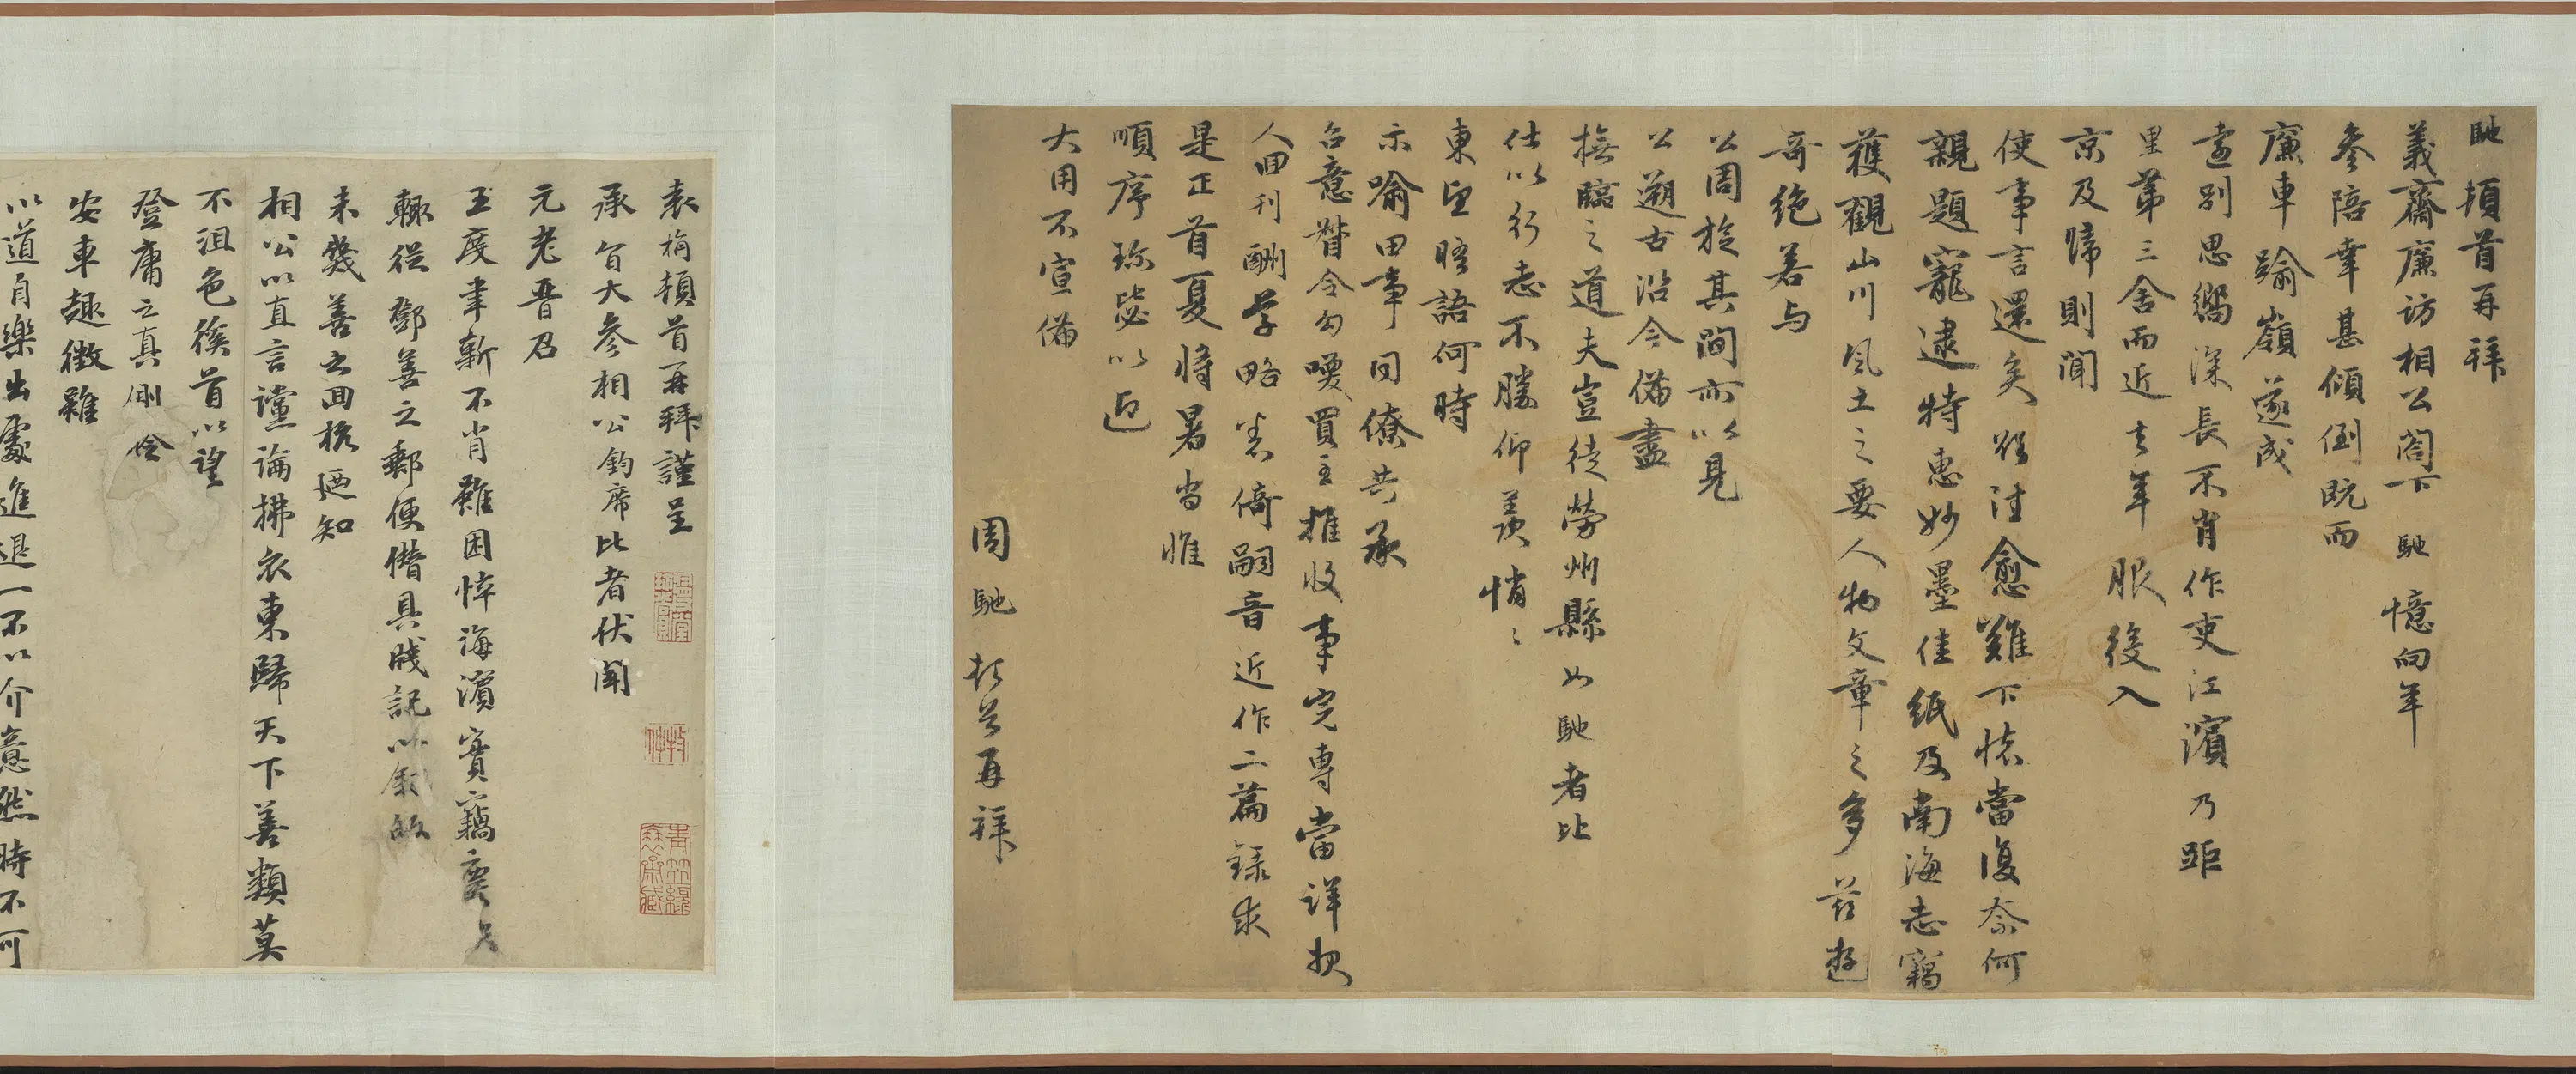 馳頓首再拜
義齋廉访相公閣下馳憶向年
參陪幸甚傾倒既而
廉車踰嶺遂成
遠別思嚮深長不肖作吏江濱乃距
里第三舍而近去年服後入
京及歸則聞
使事言還矣欲往愈難下懷當復奈何
親題寵逮特惠妙墨佳紙及南海志竊
獲觀山川風土之要人物文章之多茲遊
奇绝若与
公周旋其間亦以見
公遡古沿今備盡
撫臨之道夫豈徒勞州縣如馳者比
仕以行志不勝仰羡悄〻
東望晤語何時
示喻田事同僚共承
台意督令勾喚買主推收事完專當详报
人回刊酬草略老倚嗣音近作二篇録求
是正首夏将暑当惟
順序珍毖以迓
大用不宣備
周馳顿首再拜
袁桷頓首再拜謹呈
承旨大參相公鈞席比者伏聞
元老晋召
王度聿新不肖雖困悴海濱實竊慶焉
輙從鄧善之郵便僭具牋記以叙
未幾善之回杭廼知
相公以直言讜論拂衣東歸天下善類莫
不沮色傒首以望
登庸之真
安車趣徴雖
以道自樂出處進退一不以介意然時不可